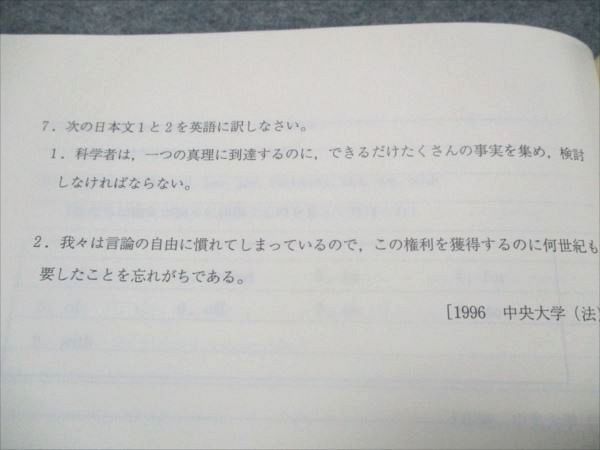 7．次の日本文1と2を英語に訳しなさい。
1．科学者は，一つの真理に到達するのに，できるだけたくさんの事実を集め，検討
しなければならない。
2．我々は言論の自由に慣れてしまっているので，この権利を獲得するのに何世紀も
要したことを忘れがちである。
[1996　中央大学（法）